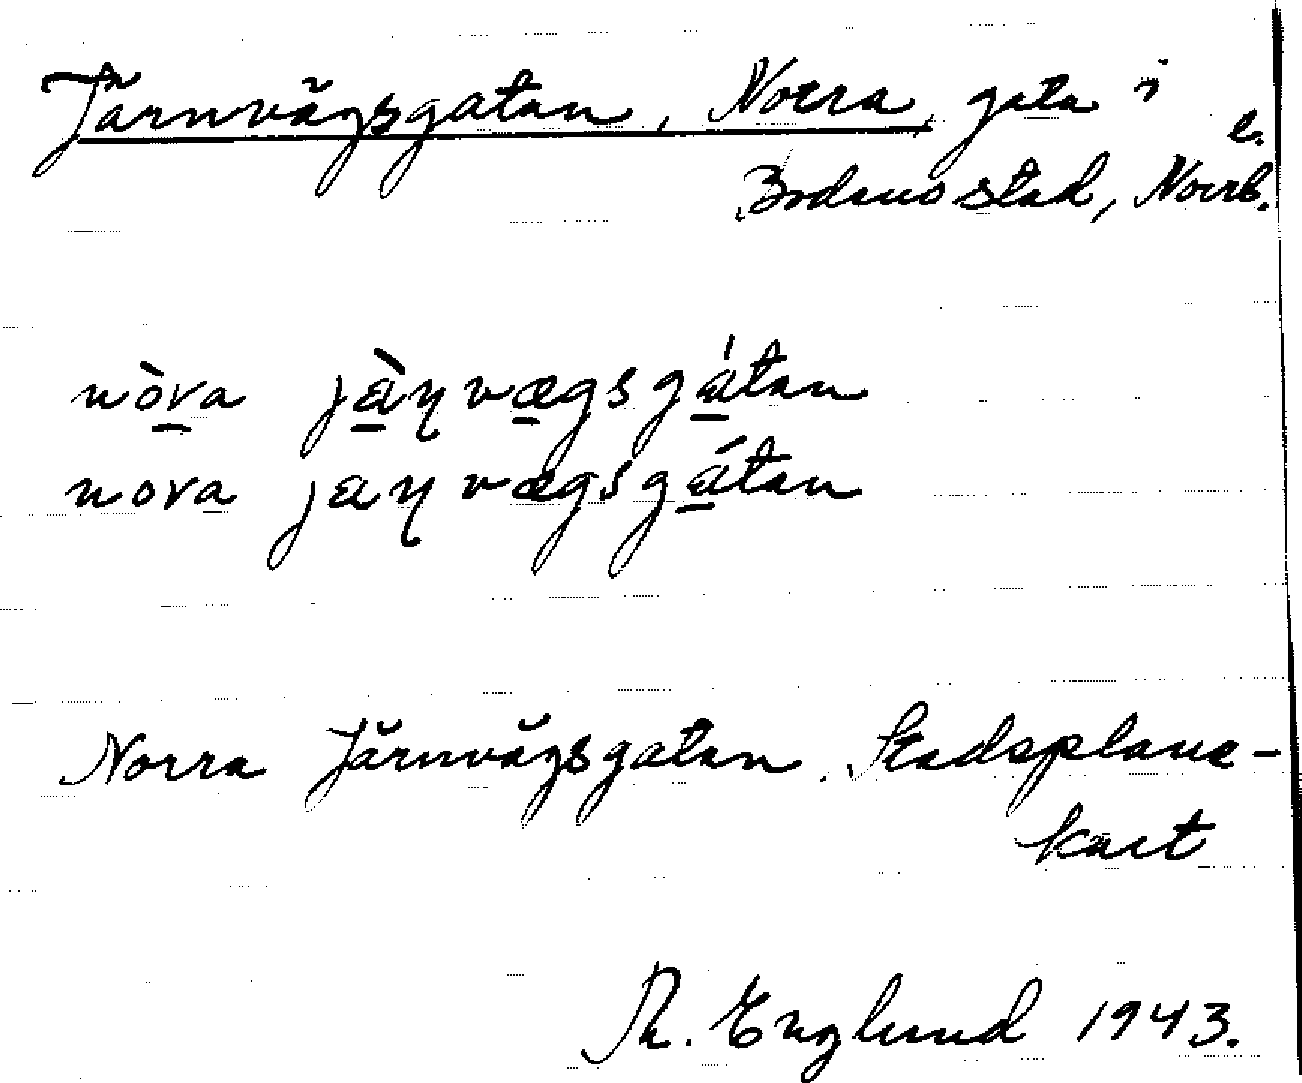 Järnvägsgatan, Norra, gata i
Bodens stad, Norrb. l.
nòra jæ̀ɳvægsgátan
nora jæɳvægsgátan
Norra Järnvägsgatan. Stadsplane-
kart
R. Englund 1943.